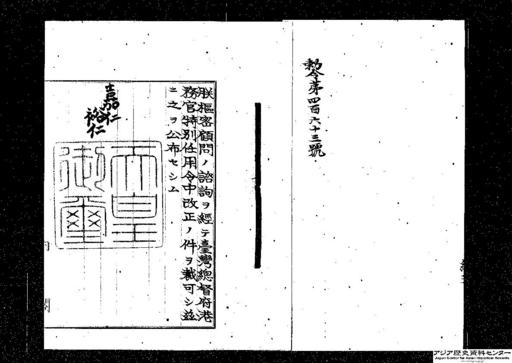 勅令第四百六十三號
朕樞密顧問ノ諮詢ヲ經テ臺灣總督府港
務官特別任用令中改正ノ件ヲ裁可シ茲
ニ之ヲ公布セシム
嘉仁
裕仁
天皇御璽
内閣
アジア歴史資料センター
Japan Center for Asian Historical Records